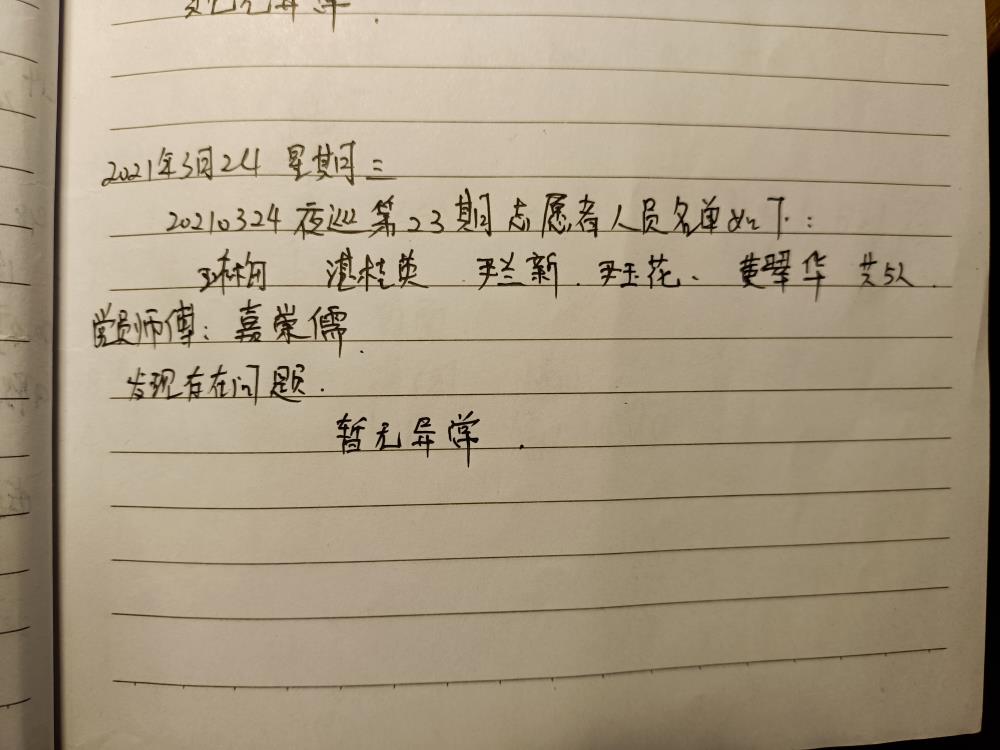 暂无异常.
2021年3月24 星期三
20210324夜巡第23期志愿者人员名单如下:
湛桂英 尹兰新. 尹玉花、 黄翠华 共5人.
学员师傅: 嘉荣儒.
发现存在问题.
暂无异常.